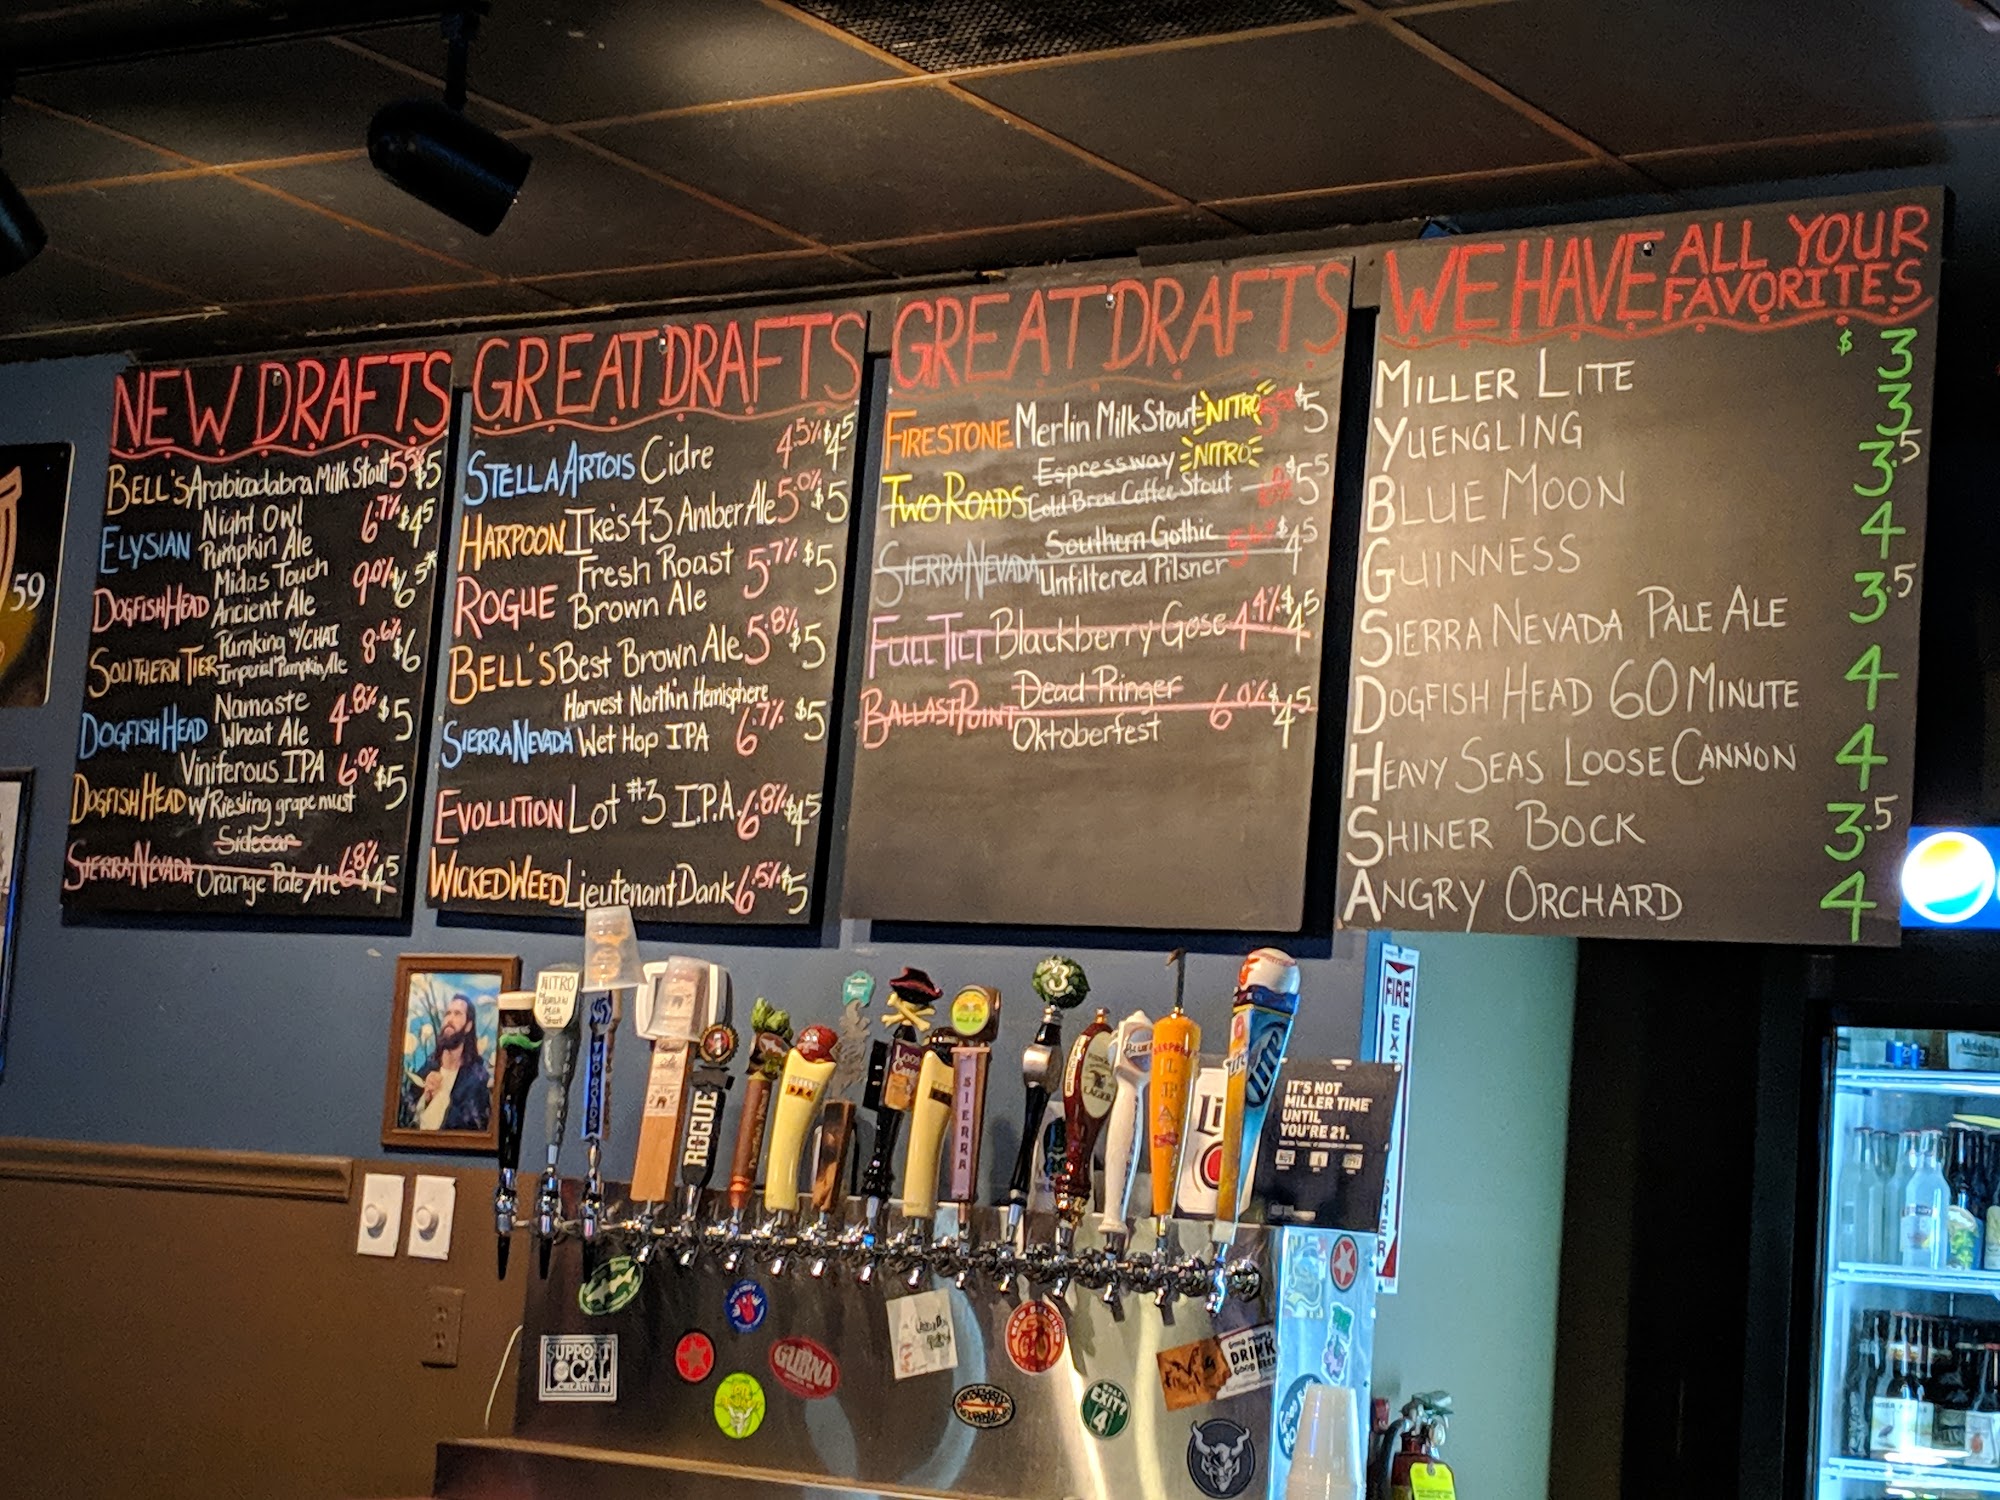 NEW DRAFTS
BELL'S Arabicadabra Milk Stout 5.5% $5
ELYSIAN Night Owl Pumpkin Ale 6.7% $4.5
DOGFISH HEAD Midas Touch Ancient Ale 9.0% $6.5*
SOUTHERN TIER Pumking w/CHAI Imperial Pumpkin Ale 8.6% $6
DOGFISH HEAD Namaste Wheat Ale 4.8% $5
DOGFISH HEAD Viniferous IPA w/Riesling grape must 6.0% $5
SIERRA NEVADA Sidecar Orange Pale Ale 6.8% $4.5
GREAT DRAFTS
STELLA ARTOIS Cidre 4.5% $4.5
HARPOON Ike's 43 Amber Ale 5.0% $5
ROGUE Fresh Roast Brown Ale 5.7% $5
BELL'S Best Brown Ale 5.8% $5
SIERRA NEVADA Harvest North'n Hemisphere Wet Hop IPA 6.7% $5
EVOLUTION Lot #3 I.P.A. 6.8% $4.5
WICKED WEED Lieutenant Dank 6.5% $5
GREAT DRAFTS
FIRESTONE Merlin Milk Stout NITRO $5
TWO ROADS Espressway NITRO Cold Brew Coffee Stout $5.5
SIERRA NEVADA Southern Gothic Unfiltered Pilsner $4.5
FULL TILT Blackberry Gose 4.4% $4.5
BALLAST POINT Dead Ringer Oktoberfest 6.0% $4.5
WE HAVE ALL YOUR FAVORITES
MILLER LITE $3
YUENGLING 3
BLUE MOON 3.5
GUINNESS 4
SIERRA NEVADA PALE ALE 3.5
DOGFISH HEAD 60 MINUTE 4
HEAVY SEAS LOOSE CANNON 4
SHINER BOCK 3.5
ANGRY ORCHARD 4
59
NITRO
Merlin
Milk
Stout
TWO ROADS
ROGUE
SIERRA
3
LAGER
I.P.A.
Lite
IT'S NOT
MILLER TIME
UNTIL
YOU'RE 21.
FIRE
SUPPORT
LOCAL
CREATIVITY
GUBNA
NEW BELGIUM
WHAT
EXIT?
4
GOOD PEOPLE
DRINK
GOOD BEER